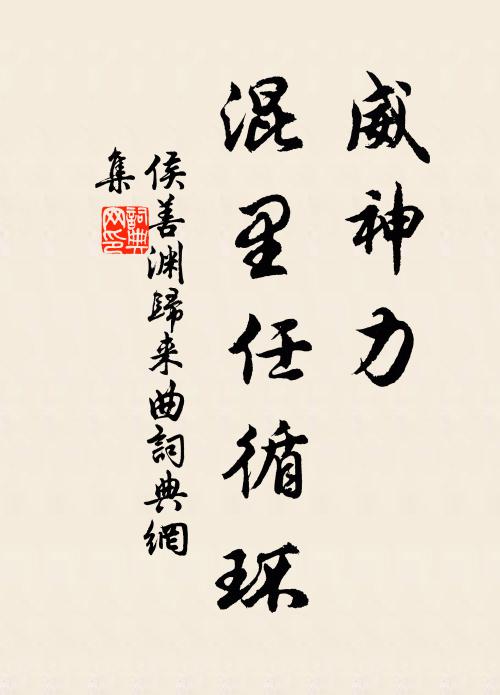 威神力
混里任循环
侯善渊歸来曲詞典網
集
詞典
网印